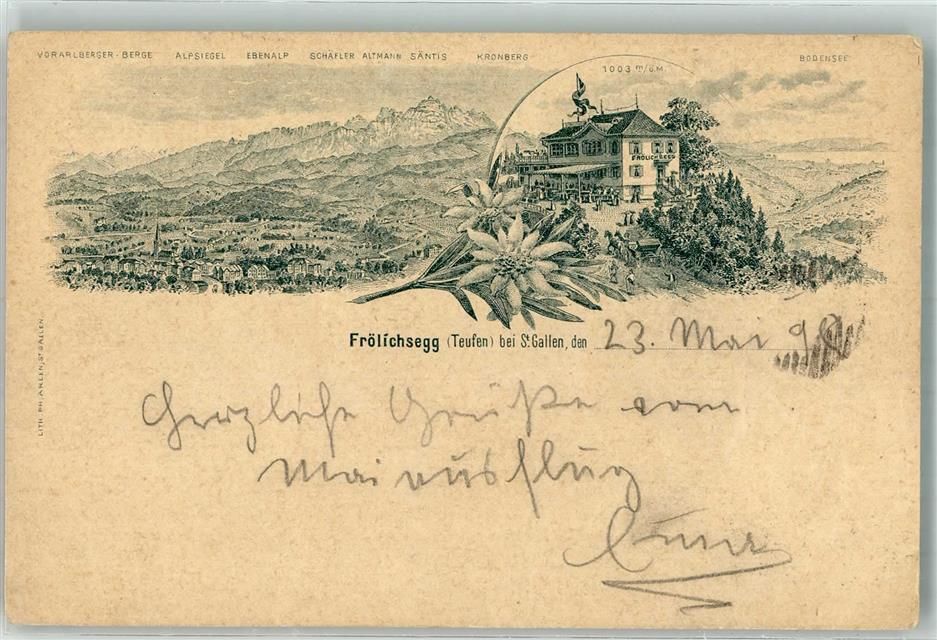 VORARLBERGER-BERGE ALPSIEGEL EBENALP SCHÄFLER ALTMANN SÄNTIS KRONBERG BODENSEE
1003 m/ü.M.
FRÖLICHSEGG
Frölichsegg (Teufen) bei St. Gallen, den 23. Mai
Herzliche Grüße vom
Maiausflug
LITH. PH. ARLEN, ST GALLEN.